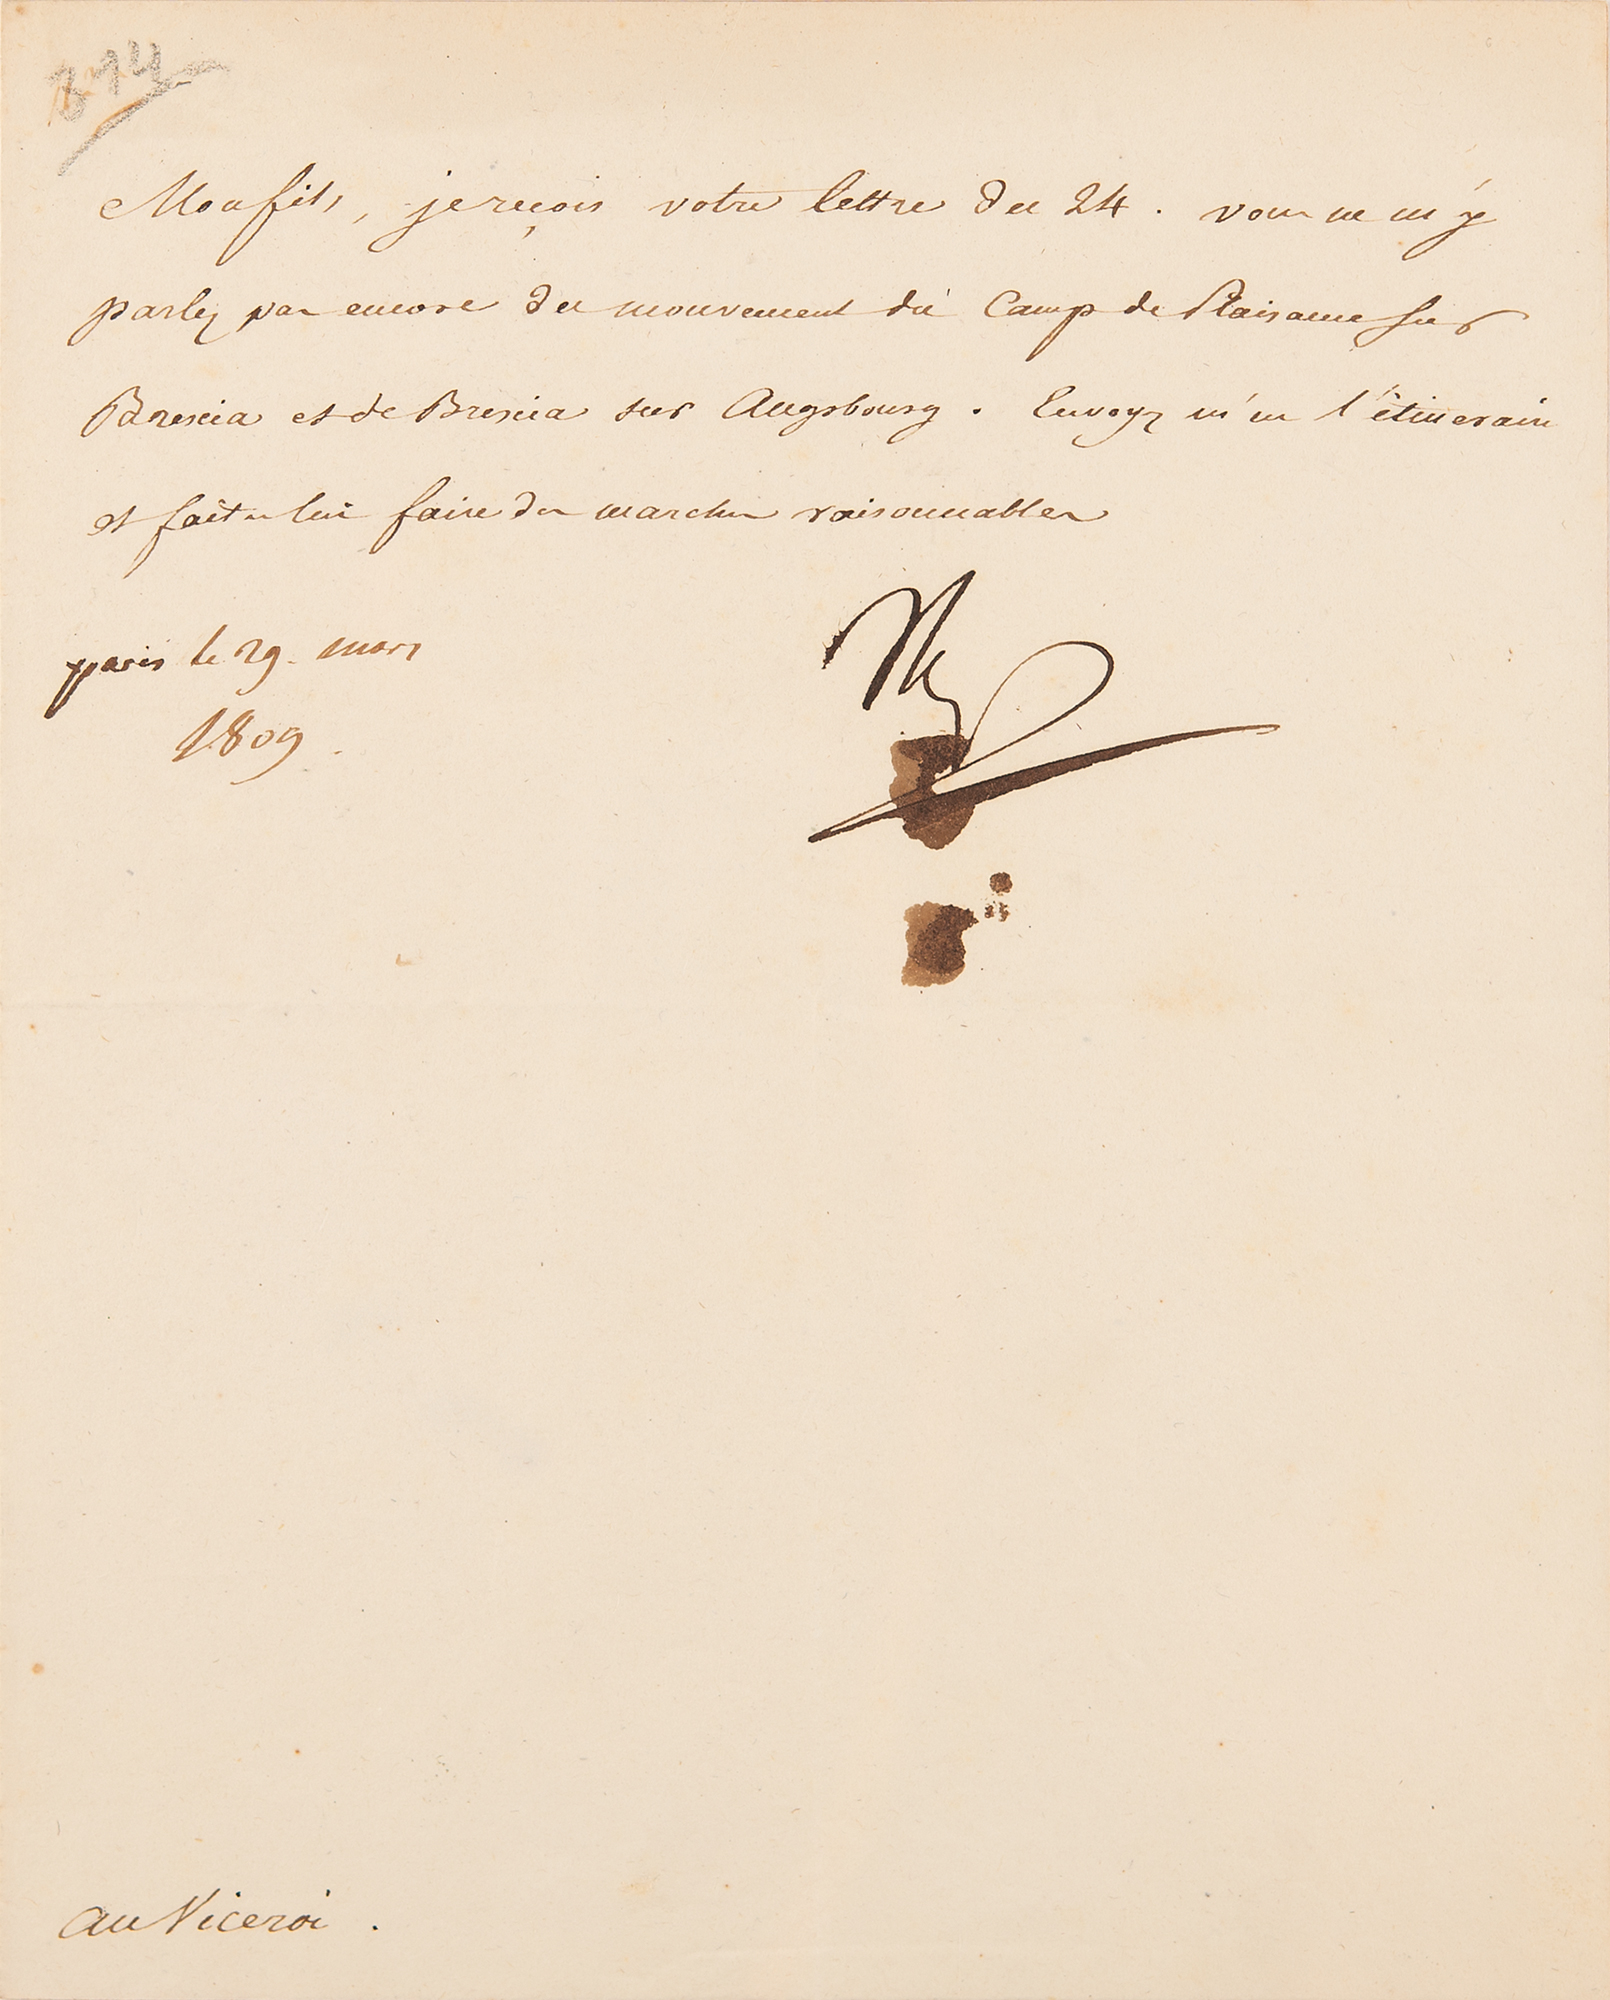 814
Mon fils, je reçois votre lettre du 24. vous ne m'y
parlez pas encore du mouvement du Camp de Plaisance sur
Brescia et de Brescia sur Augsbourg. Envoyez m'en l'itineraire
et faites lui faire des marches raisonnables
paris le 29. mars
1809.
Np
au Viceroi.